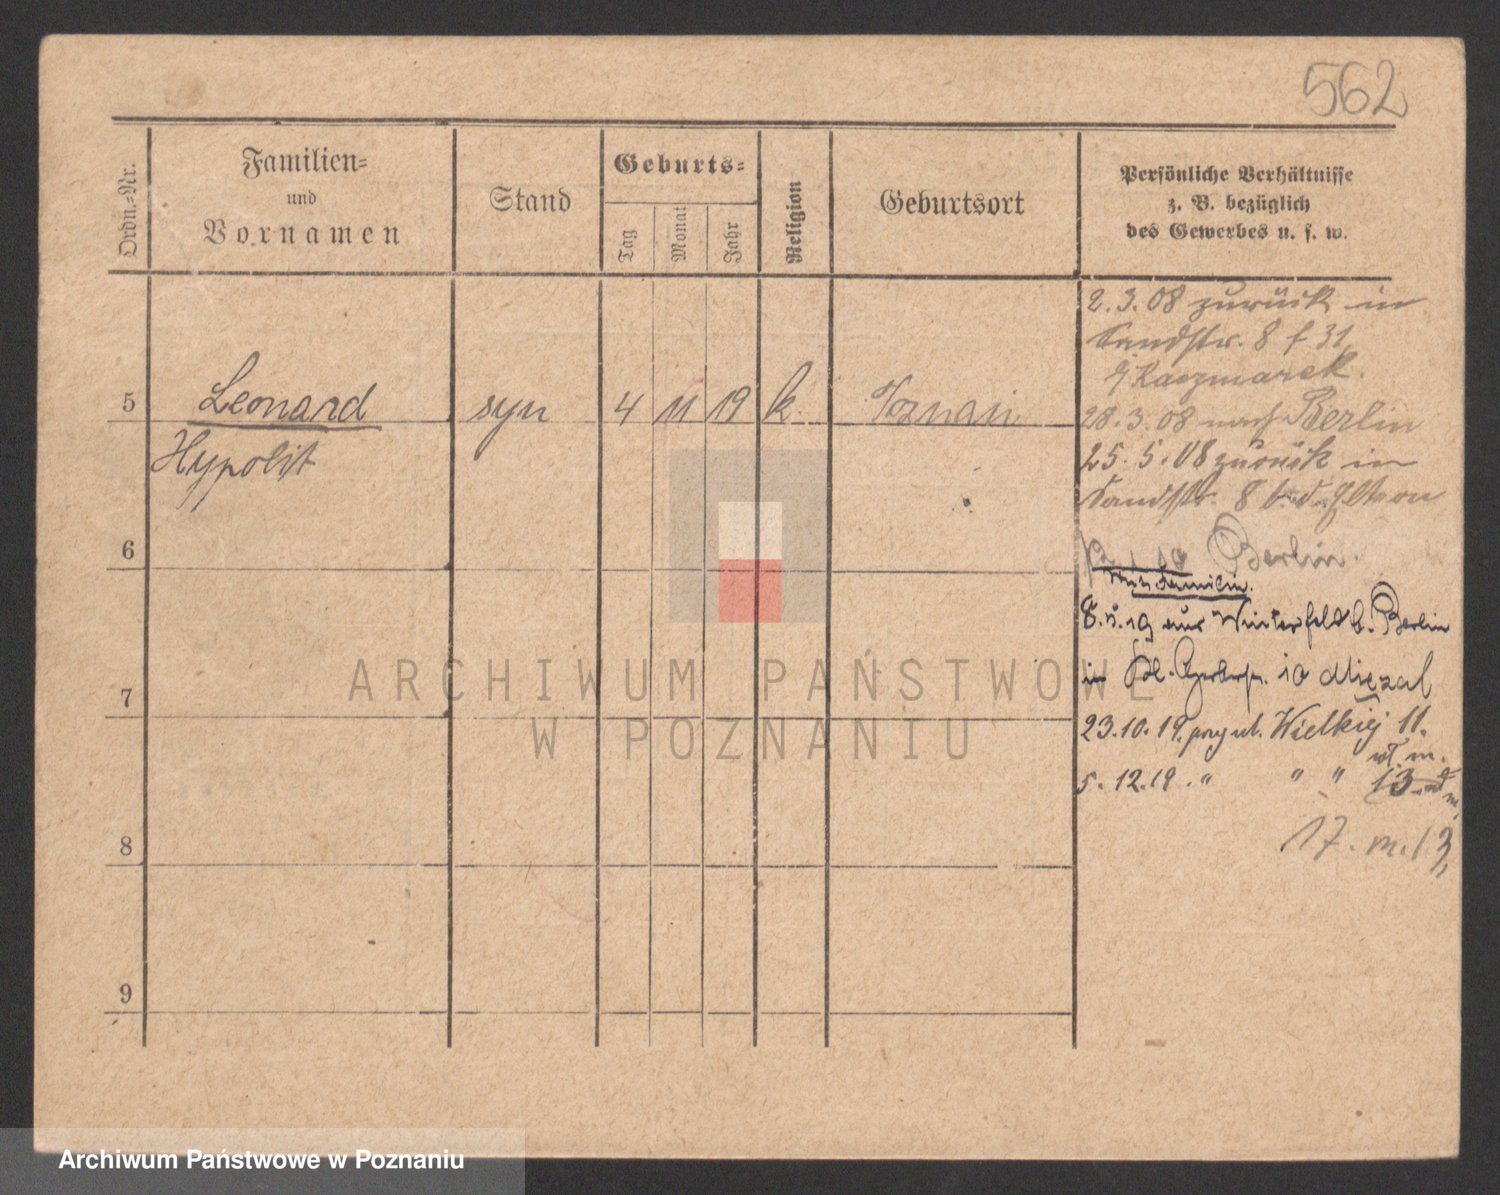 562
Ordn.-Nr.
Familien-
und
Vornamen
Stand
Geburts-
Tag
Monat
Jahr
Religion
Geburtsort
Persönliche Verhältnisse
z. B. bezüglich
des Gewerbes u. s. w.
5
Leonard
Hypolit
syn
4
11
19
k.
Poznań
6
7
8
9
2.3.08 zurück in
Sandstr. 8 f 31
Kaczmarek.
28.3.08 nach Berlin
25.5.08 zurück in
Sandstr. 8 b. d. Eltern
Berlin.
Familie.
aus Winterfeld b. Berlin
in 10 Mięzal
23.10.19. przy ul. Wielkiej 11.
5.12.19. " " " 13
17. m. 13,
ARCHIWUM PAŃSTWOWE
W POZNANIU
Archiwum Państwowe w Poznaniu